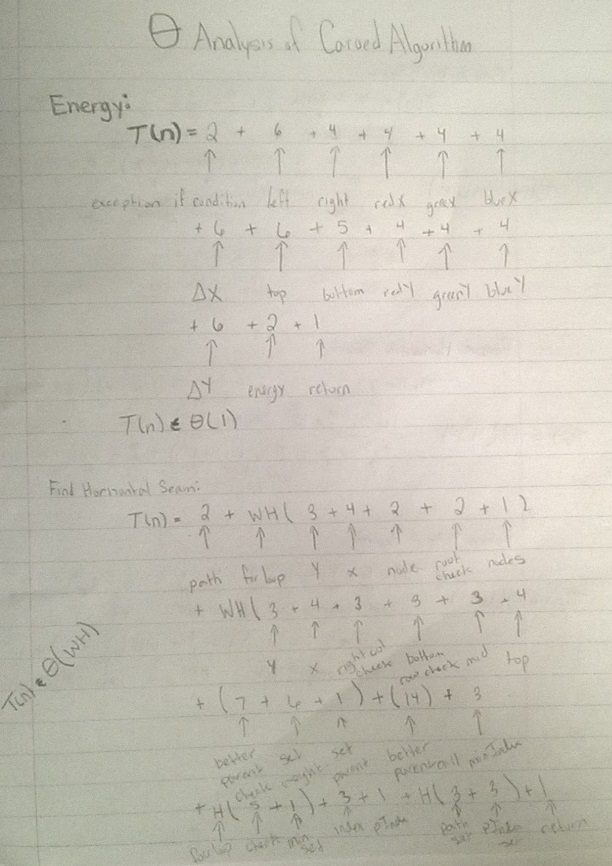 Θ Analysis of Carved Algorithm
Energy:
T(n) = 2 + 6 + 4 + 4 + 4 + 4
exception if condition left right redX greenX blueX
+ 6 + 6 + 5 + 4 + 4 + 4
ΔX top bottom redY greenY blueY
+ 6 + 2 + 1
ΔY energy return
T(n) ∈ Θ(1)
Find Horizontal Seam:
T(n) = 2 + WH( 3 + 4 + 2 + 2 + 1 )
path for loop Y x node root check nodes
+ WH( 3 + 4 + 3 + 3 + 3 + 4
Y x right col check bottom row check mid top
T(n) ∈ Θ(WH)
+ (7 + 6 + 1) + (14) + 3
better parent check set weight set parent better parent call minIndex
+ H( 5 + 1) + 3 + 1 + H( 3 + 3 ) + 1
for loop check min set index pIndex path set pIndex set return